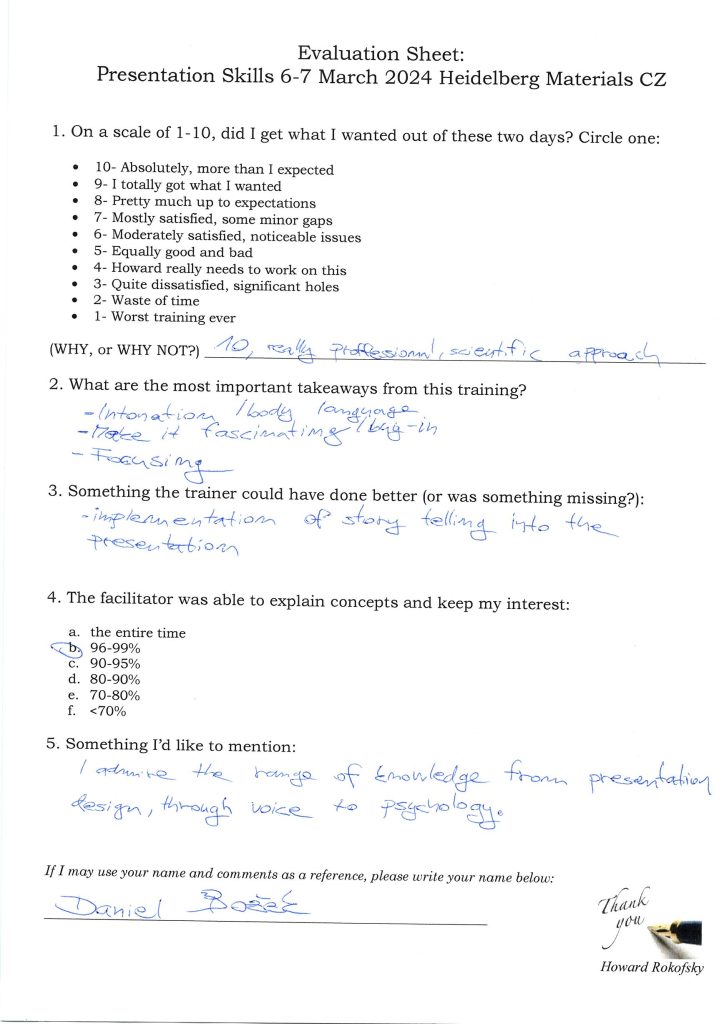 Evaluation Sheet:
Presentation Skills 6-7 March 2024 Heidelberg Materials CZ
1. On a scale of 1-10, did I get what I wanted out of these two days? Circle one:
• 10- Absolutely, more than I expected
• 9- I totally got what I wanted
• 8- Pretty much up to expectations
• 7- Mostly satisfied, some minor gaps
• 6- Moderately satisfied, noticeable issues
• 5- Equally good and bad
• 4- Howard really needs to work on this
• 3- Quite dissatisfied, significant holes
• 2- Waste of time
• 1- Worst training ever
(WHY, or WHY NOT?) 10, really professional, scientific approach
2. What are the most important takeaways from this training?
- Intonation / body language
- Make it fascinating / buy-in
- Focusing
3. Something the trainer could have done better (or was something missing?):
- implementation of story telling into the
presentation
4. The facilitator was able to explain concepts and keep my interest:
a. the entire time
b. 96-99%
c. 90-95%
d. 80-90%
e. 70-80%
f. <70%
5. Something I'd like to mention:
I admire the range of knowledge from presentation
design, through voice to psychology.
If I may use your name and comments as a reference, please write your name below:
Daniel Božek
Thank
you
Howard Rokofsky